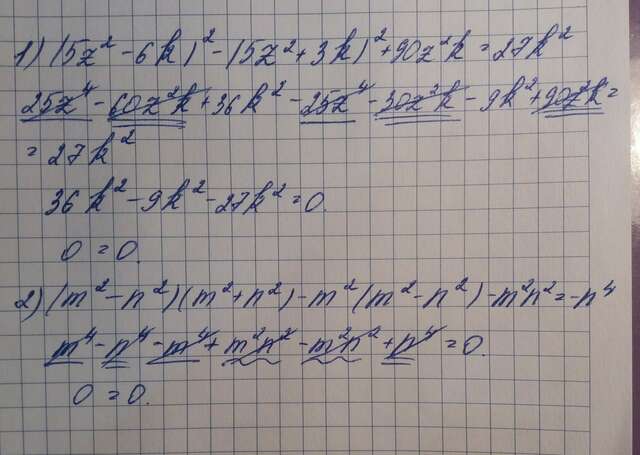 1) (5z² - 6k)² - (5z² + 3k)² + 90z²k = 27k²
25z⁴ - 60z²k + 36k² - 25z⁴ - 30z²k - 9k² + 90z²k =
= 27k²
36k² - 9k² - 27k² = 0.
0 = 0.
2) (m² - n²)(m² + n²) - m²(m² - n²) - m²n² = -n⁴
m⁴ - n⁴ - m⁴ + m²n² - m²n² + n⁴ = 0.
0 = 0.